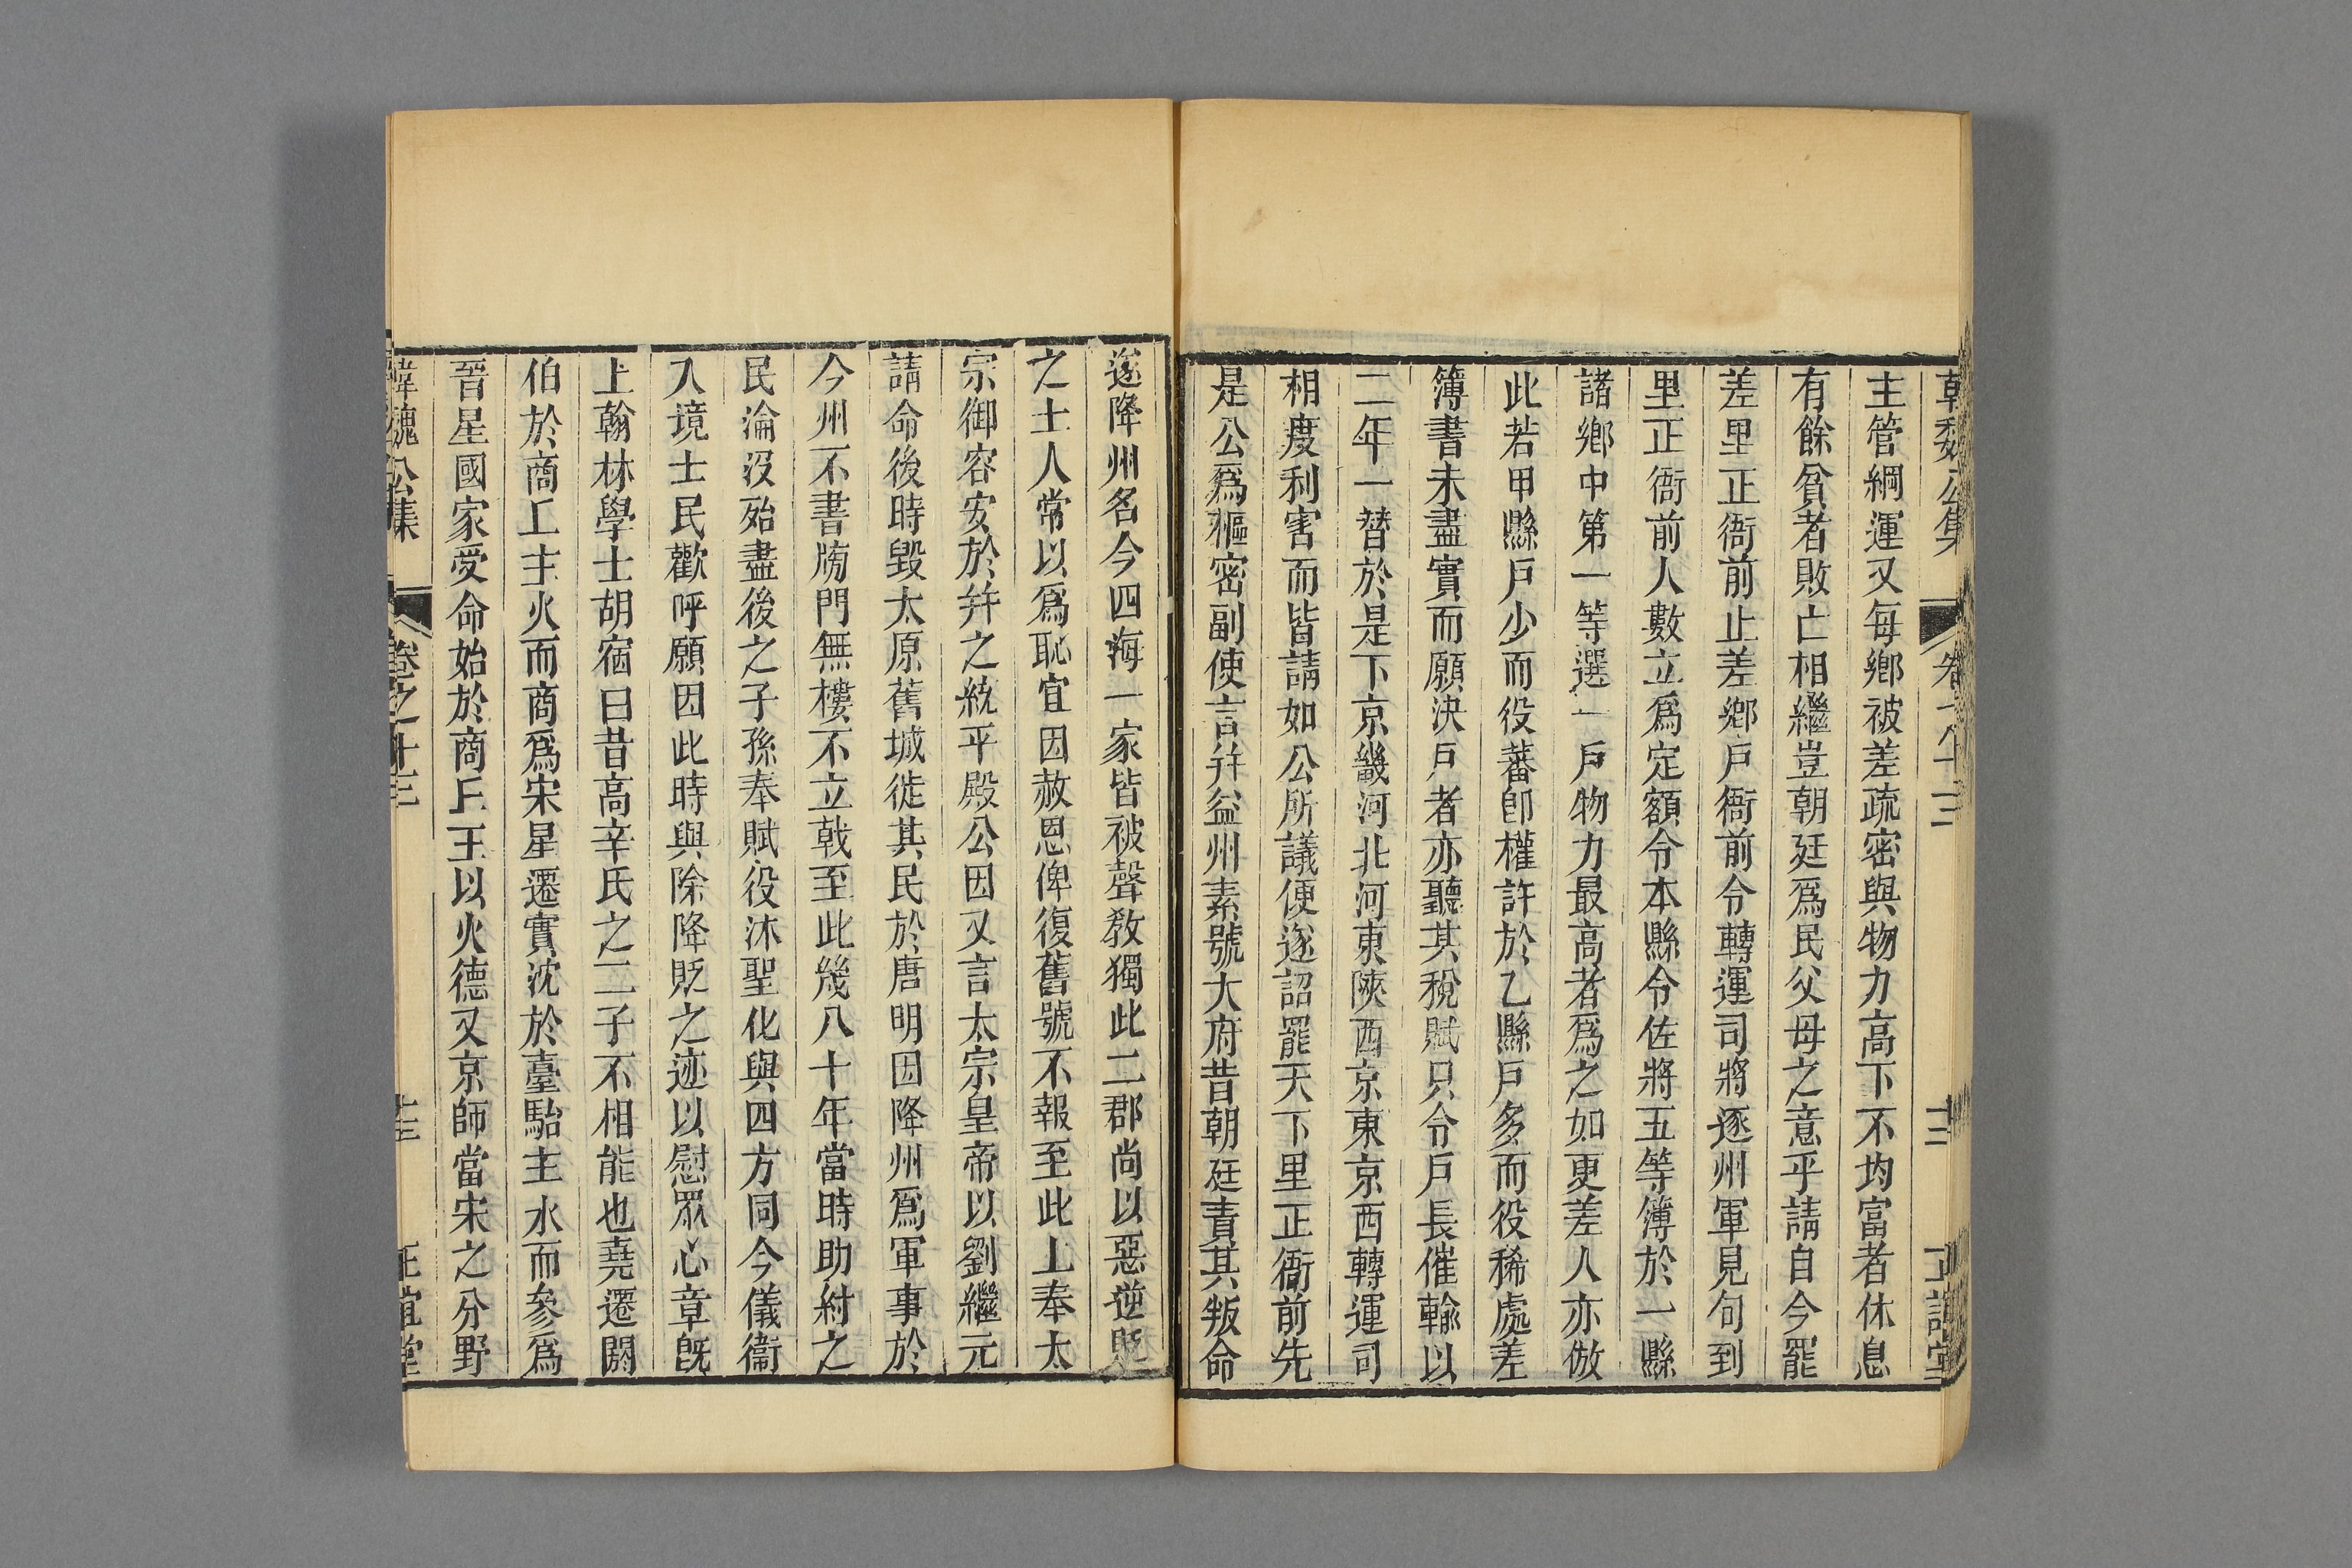 韓魏公集 卷之十三 十二 正誼堂
主管綱運又每鄉被差疏密與物力高下不均富者休息
有餘貧者敗亡相繼豈朝廷爲民父母之意乎請自今罷
差里正衙前止差鄉戶衙前令轉運司將逐州軍見句到
里正衙前人數立爲定額令本縣令佐將五等簿於一縣
諸鄉中第一等選一戶物力最高者爲之如更差人亦倣
此若甲縣戶少而役蕃卽權許於乙縣戶多而役稀處差
簿書未盡實而願決戶者亦聽其稅賦只令戶長催輸以
二年一替於是下京畿河北河東陝西京東京西轉運司
相度利害而皆請如公所議便遂詔罷天下里正衙前先
是公爲樞密副使言幷益州素號大府昔朝廷責其叛命
遂降州名今四海一家皆被聲敎獨此二郡尚以惡逆貶
之士人常以爲恥宜因赦恩俾復舊號不報至此上奉太
宗御容安於幷之統平殿公因又言太宗皇帝以劉繼元
請命後時毀太原舊城徙其民於唐明因降州爲軍事於
今州不書牓門無樓不立戟至此幾八十年當時助紂之
民淪沒殆盡後之子孫奉賦役沐聖化與四方同今儀衞
入境士民歡呼願因此時與除降貶之迹以慰眾心章旣
上翰林學士胡宿曰昔高辛氏之二子不相能也堯遷閼
伯於商丘主火而商爲宋星遷實沈於臺駘主水而參爲
晉星國家受命始於商丘王以火德又京師當宋之分野
韓魏公集 卷之十三 十三 正誼堂